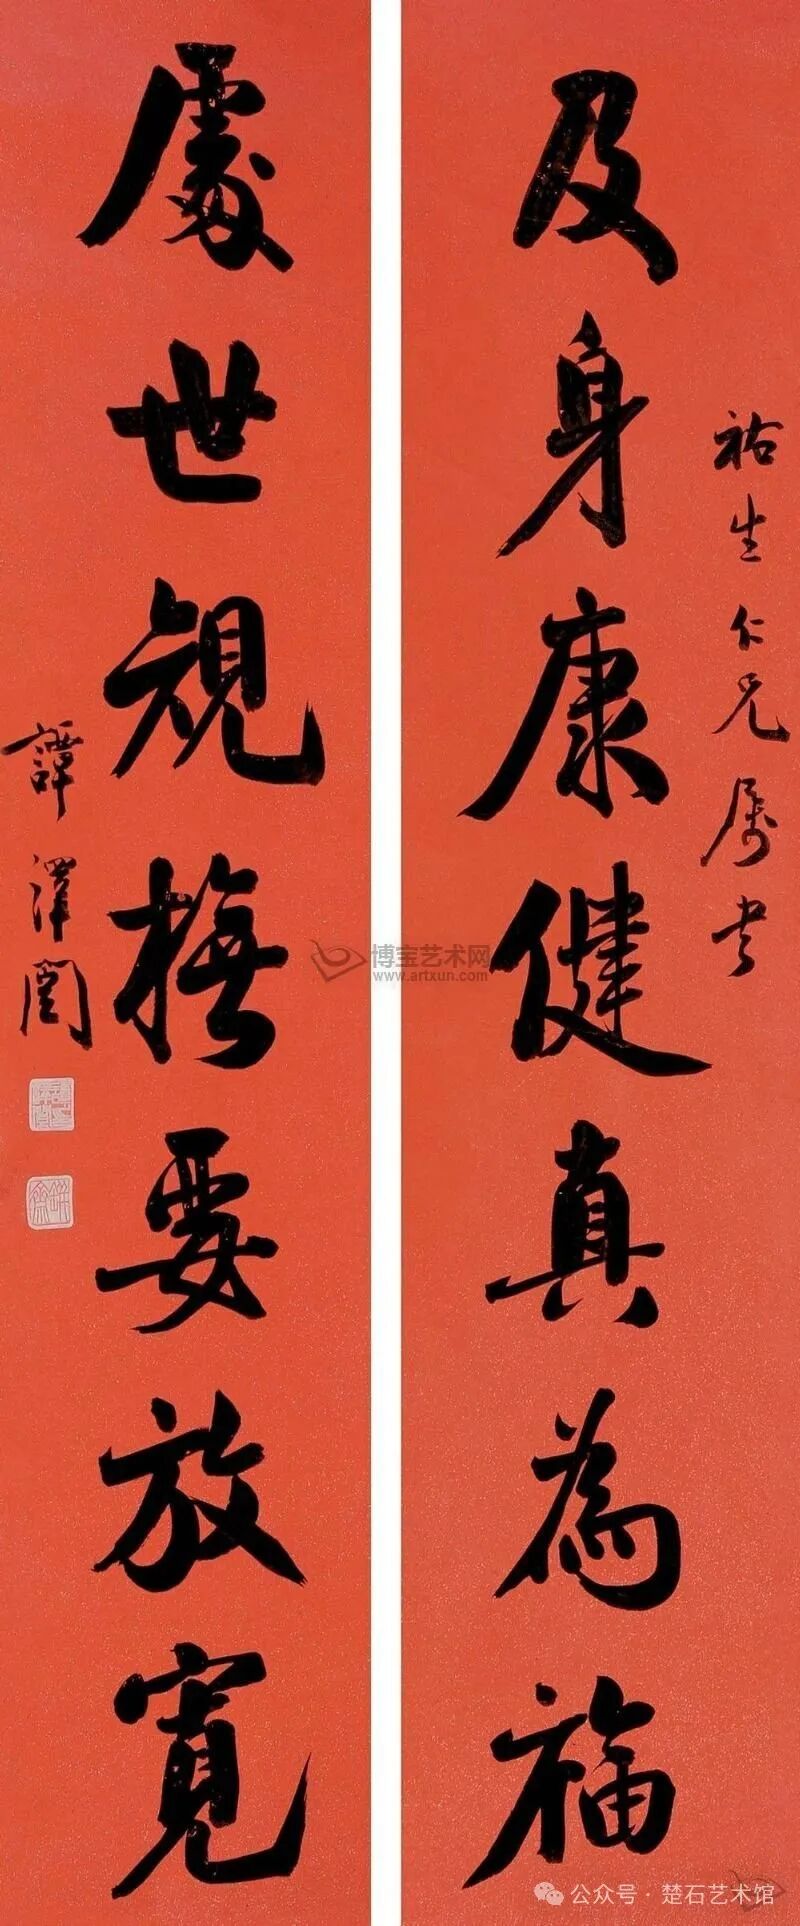 祐生仁兄屬書
及身康健真為福
處世規橅要放寬
譚澤闓
博宝艺术网
www.artxun.com
公众号 · 楚石艺术馆